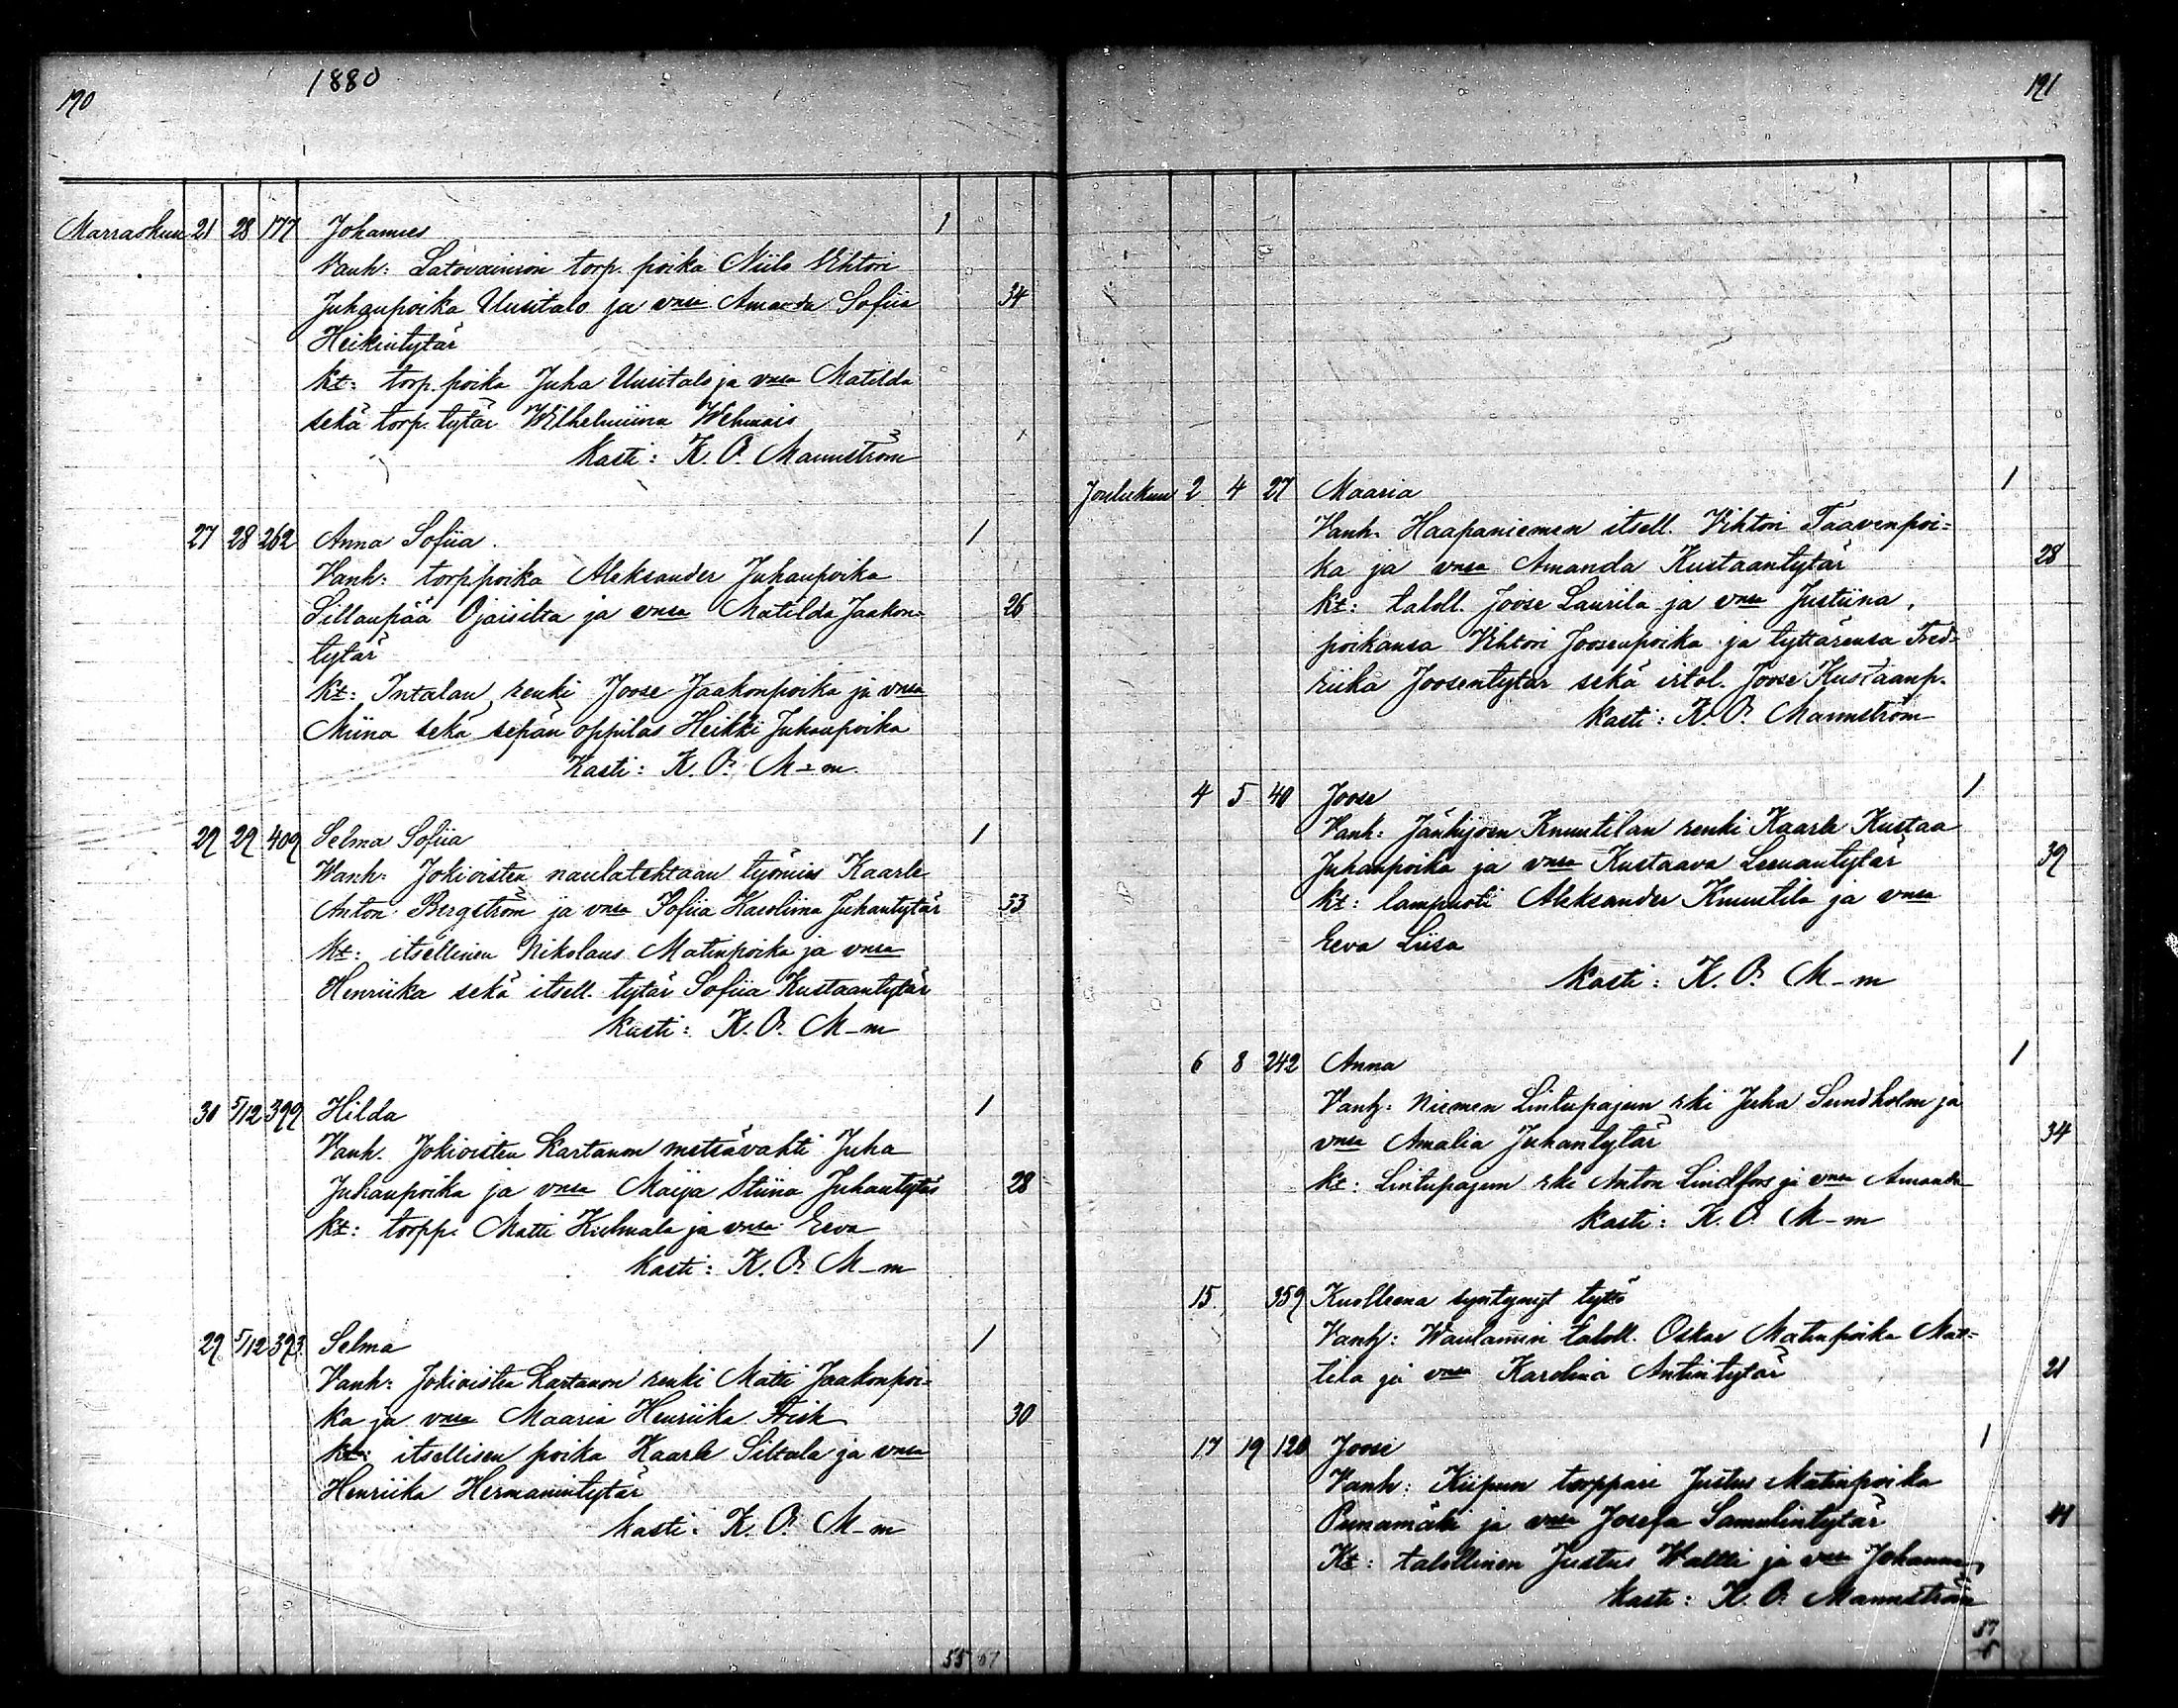 1880
190
Marraskuu 21 28 177 Johannes 1
Vanh: Latovainion torp. poika Niilo Vihtori
Juhanpoika Uusitalo ja vmsa Amanda Sofiia 34
Heikintytär
kt: torp. poika Juha Uusitalo ja vmsa Matilda
sekä torp. tytär Wilhelmiina
Kasti: K. O. Mannström
27 28 262 Anna Sofiia 1
Vanh: torp poika Aleksander Juhanpoika
Sillanpää Ojaisilta ja vmsa Matilda Jaakon= 26
tytär
kt: Intalan renki Joose Jaakonpoika ja vmsa
Miina sekä sepän oppilas Heikki Juhanpoika
Kasti: K. O. M=m.
29 29 409 Selma Sofiia 1
Wanh: Jokioisten naulatehtaan työmies Kaarle
Anton Bergström ja vmsa Sofiia Karoliina Juhantytär 33
kt: itsellinen Nikolaus Matinpoika ja vmsa
Henriika sekä itsell. tytär Sofiia Kustaantytär
kasti: K. O. M-m
30 5/12 399 Hilda 1
Vanh. Jokioisten Kartanon metsävahti Juha
Juhanpoika ja vmsa Maija Stiina Juhantytär 28
kt: torpp. Matti ja vmsa Eeva
kasti: K. O. M-m
29 5/12 393 Selma 1
Vanh: Jokioisten Kartanon renki Matti Jaakonpoi=
ka ja vmsa Maaria Henriika 30
kt: itsellisen poika Kaarle Siltala ja vmsa
Henriika Hermanintytär
kasti: K. O. M-m
55
191
Joulukuu 2 4 27 Maaria 1
Vanh. Haapaniemen itsell. Vihtori Taavenpoi=
ka ja vmsa Amanda Kustaantytär 28
kt: taloll. Joose Laurila ja vmsa Justiina,
poikansa Vihtori Joosenpoika ja tyttärensa Fred=
riika Joosentytär sekä irtol. Joose Kustaanp.
kasti: K. O. Mannström
4 5 40 Joose 1
Vanh: Jänhijoen Knuutilan renki Kaarle Kustaa
Juhanpoika ja vmsa Kustaava Leenantytär 39
kt: lampuoti Aleksander Knuutila ja vmsa
Eeva Liisa
kasti: K. O. M-m
6 8 242 Anna 1
Vanh: Niemen Lintupajun rki Juha Sundholm ja
vmsa Amalia Juhantytär 34
kt: Lintupajun rki Anton Lindfors ja vmsa Amanda
kasti: K. O. M-m
15 359 Kuolleena syntynyt tyttö
Vanh: Waulamin taloll. Oskar Matinpoika Mat=
tila ja vmsa Karolina Antintytär 21
17 19 120 Joosi 1
Vanh: Kiipun torppari Justus Matinpoika
Punamäki ja vmsa Josefa Samulintytär 41
Kt: talollinen Justus Waltti ja vmsa Johanna
kasti: K. O. Mannström